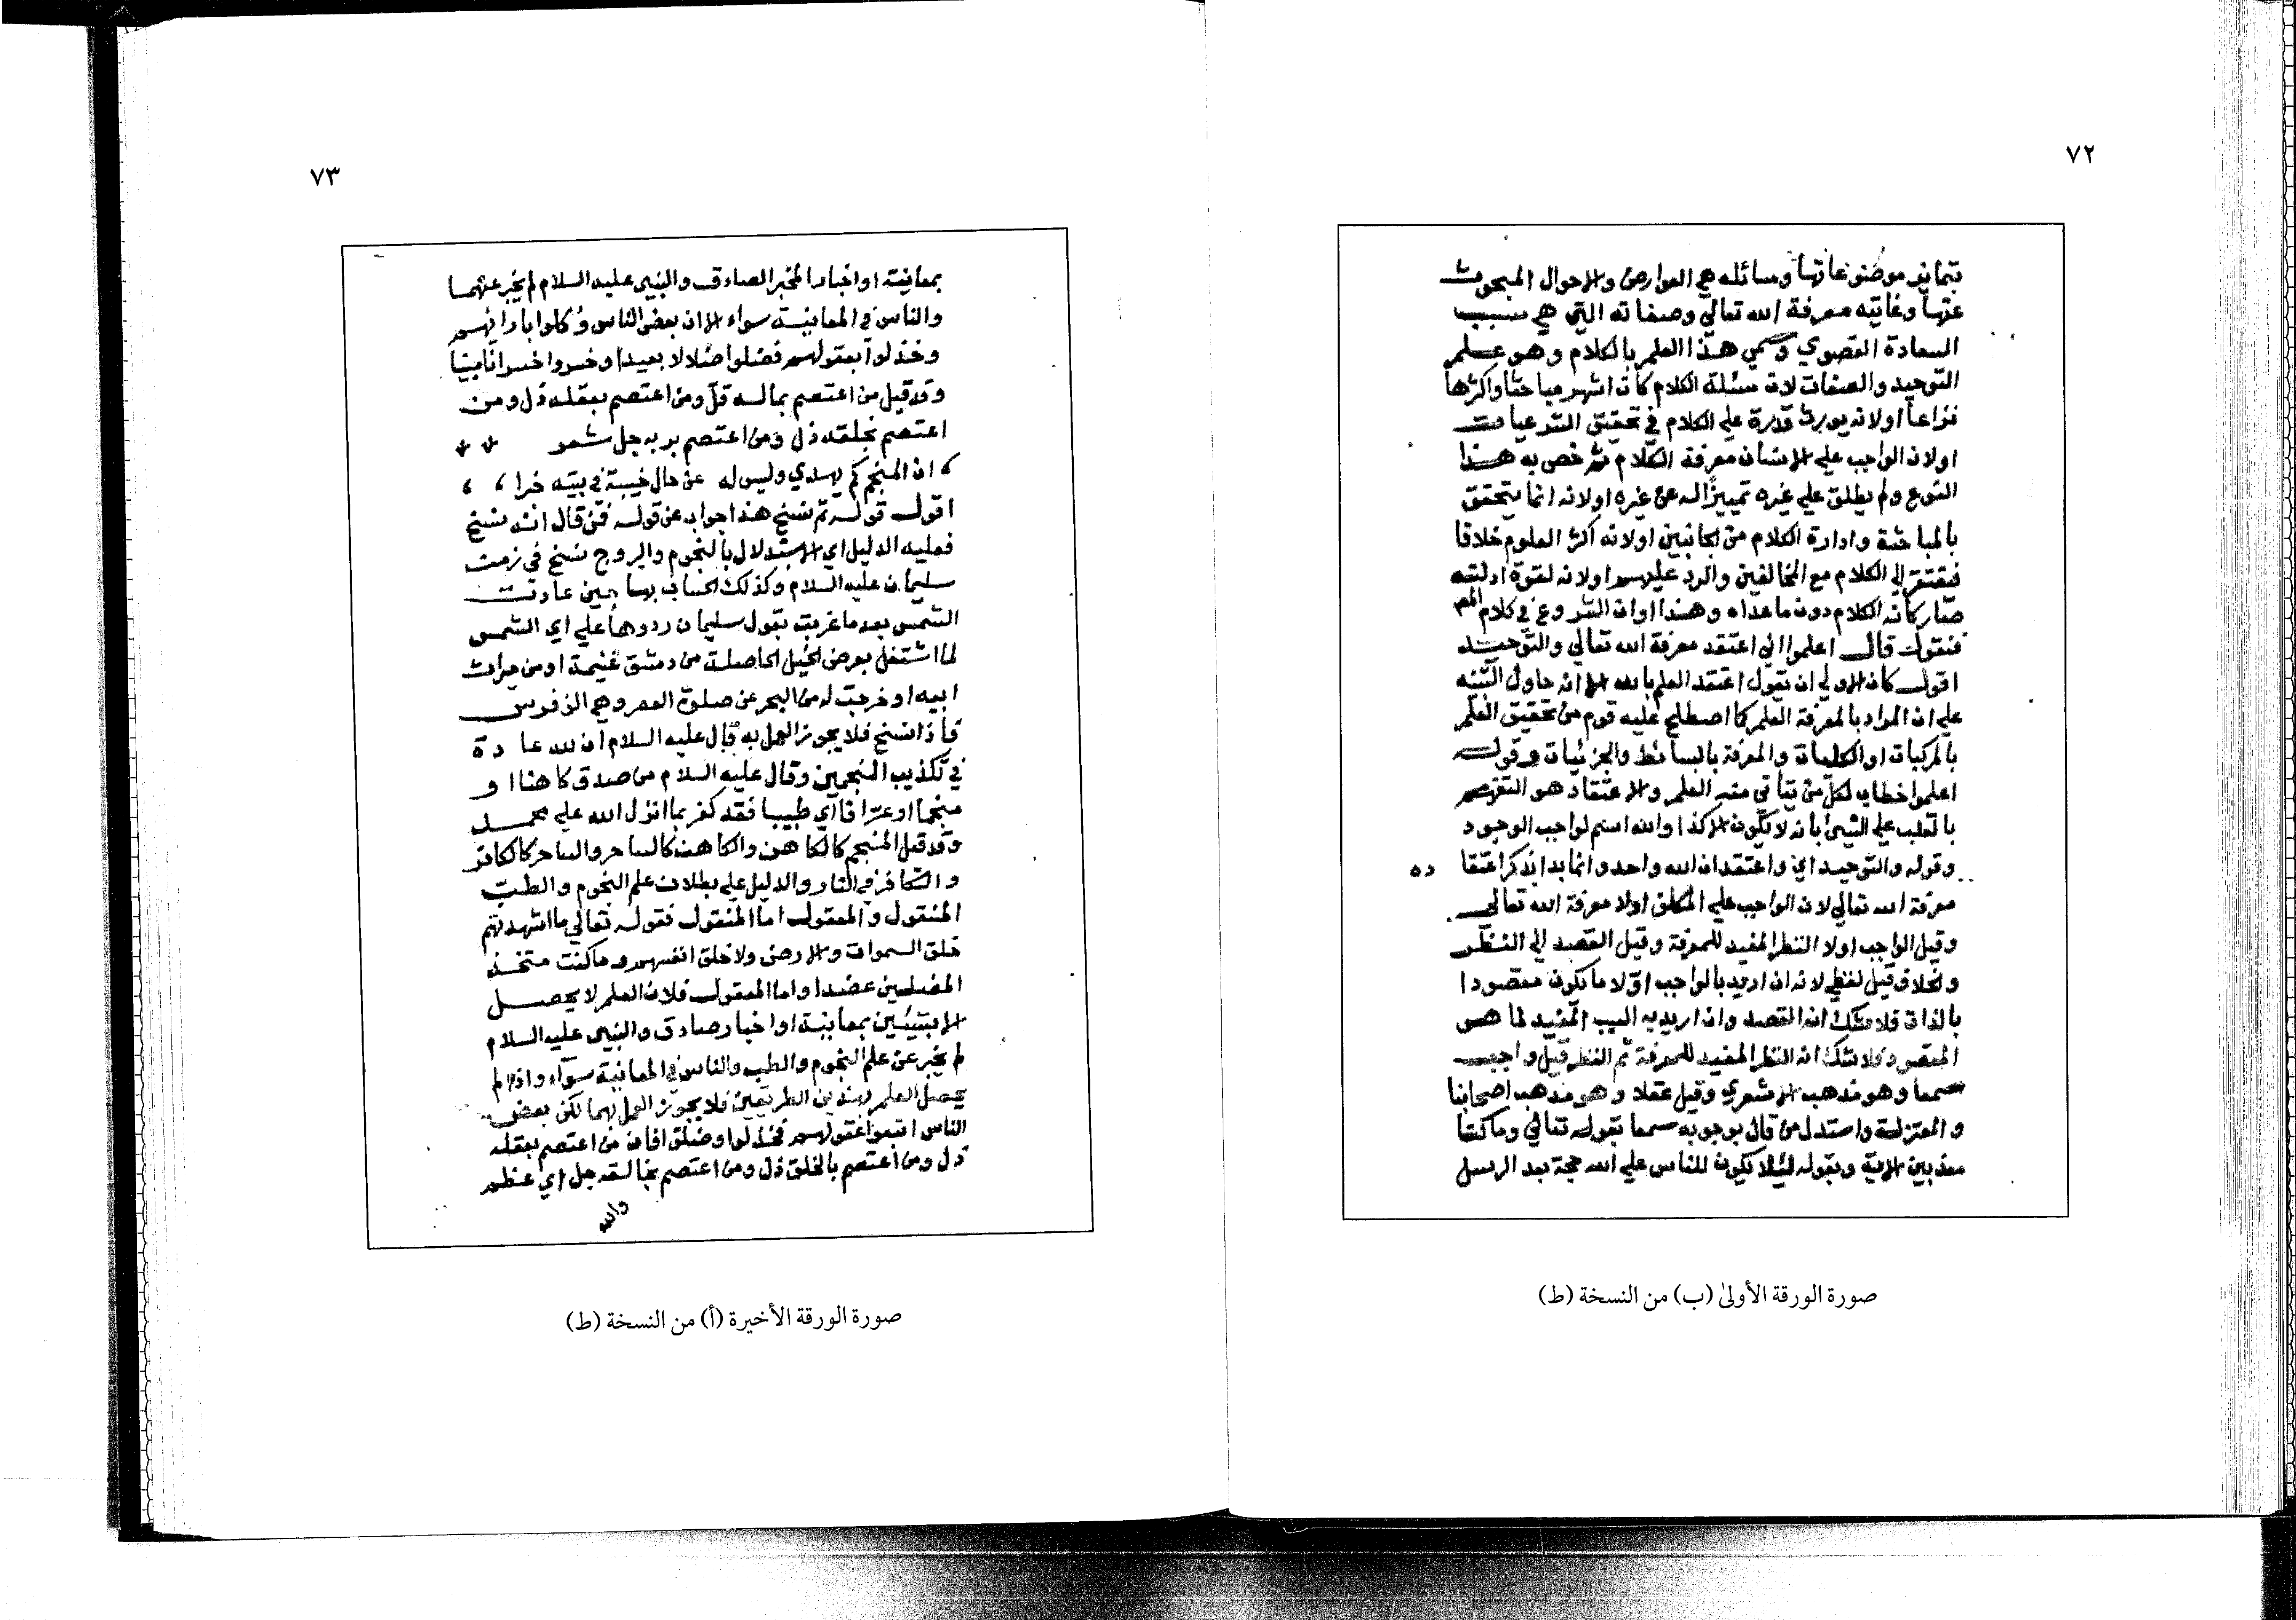 ٧٢
بتمايز موضوعاتها ومسائله هي العوارض والاحوال المبحوث
عنها وغايته معرفة الله تعالي وصفاته التي هي سبب
السعادة القصوي وسمي هذا العلم بالكلام وهو علم
التوحيد والصفات لان مسئلة الكلام كان اشهر مباحثا واكثرها
نزاعا اولانه يورث قدرة علي الكلام في تحقيق الشرعيات
اولان الواجب علي الانسان معرفة الكلام ثم خص به هذا
النوع ولم يطلق علي غيره تمييزا له عن غيره اولانه انما يتحقق
بالمباحثة وادارة الكلام من الجانبين اولانه اكثر العلوم خلافا
فيفتقر الي الكلام مع المخالفين والرد عليهم اولانه لقوة ادلته
صار كانه الكلام دون ماعداه وهذا اوان الشروع في كلام المص
فنقول قال اعلموا اني اعتقد معرفة الله تعالي والتوحيد
اقول كان الاولي ان يقول اعتقد العلم بالله الا انه حاول التنبيه
علي ان المراد بالمعرفة العلم كما اصطلح عليه قوم من تحقيق العلم
بالمركبات او الكليات والمعرفة بالبسائط والجزئيات وقوله
اعلموا خطاب لكل من يتأتي منه العلم والاعتقاد هو التصميم
بالقلب علي الشيئ بانه لا يكون الا كذا والله اسم لواجب الوجود
وقوله والتوحيد اي واعتقد ان الله واحد وانما بدا بذكر اعتقا ده
معرفة الله تعالي لان الواجب علي المكلف اولا معرفة الله تعالي
وقيل الواجب اولا النظر المفيد للمعرفة وقيل القصد الي النظر
والخلاف قيل لفظي لانه ان اريد بالواجب اولا ما يكون مقصودا
بالذات فلا شك انه القصد وان اريد به السبب المفيد لما هو
المقصود فلا شك انه النظر المفيد للمعرفة ثم النظر قيل واجب
سمعا وهو مذهب الاشعري وقيل عقلا وهو مذهب اصحابنا
والمعتزلة واستدل من قال بوجوبه سمعا بقوله تعالي وما كنا
معذبين الاية وبقوله لئلا يكون للناس علي الله حجة بعد الرسل
صورة الورقة الأولىٰ (ب) من النسخة (ط)
٧٣
بمعاينة او اخبار المخبر الصادق والنبي عليه السلام لم يخبر عنهما
والناس في المعاينة سواء الا ان بعض الناس وكلوا بارائهم
وخذلوا بعقولهم فضلوا ضلالا بعيدا وخسروا خسرانا مبينا
وقد قيل من اعتصم بماله قل ومن اعتصم بعقله ذل ومن
اعتصم بخلقه ذل ومن اعتصم بربه جل شعر
ان المنجم كم يهدي وليس له عن حال خيبة في بيته خبرا
اقول قوله ثم نسخ هذا جواب عن قوله فمن قال انه نسخ
فعليه الدليل اي الاستدلال بالنجوم والبروج نسخ في زمن
سليمان عليه السلام وكذلك الحساب بها حين عادت
الشمس بعد ما غربت بقول سليمان ردوها علي اي الشمس
لما اشتغل بعرض الخيل الحاصلة من دمشق غنيمة او من ميراث
ابيه او خرجت له من البحر عن صلوة العصر وهي الف فرس
فاذا نسخ فلا يجوز العمل به قال عليه السلام ان لله عا دة
في تكذيب المنجمين وقال عليه السلام من صدق كاهنا او
منجما او عرافا اي طبيبا فقد كفر بما انزل الله علي محمد
وقد قيل المنجم كالكاهن والكاهن كالساحر والساحر كالكافر
والكافر في النار والدليل علي بطلان علم النجوم والطب
المنقول والمعقول اما المنقول فقوله تعالي ما اشهدتهم
خلق السموات والارض ولا خلق انفسهم وما كنت متخذ
المضلين عضدا واما المعقول فلان العلم لا يحصل
الا بشيئين بمعاينة او اخبار صادق والنبي عليه السلام
لم يخبر عن علم النجوم والطب والناس في المعاينة سواء واذا لم
يحصل العلم بهذين الطريقين فلا يجوز العمل بهما لكن بعض
الناس اتبعوا عقولهم فخذلوا وضلوا فان من اعتصم بعقله
ذل ومن اعتصم بالخلق ذل ومن اعتصم بخالقه جل اي عظم
والله
صورة الورقة الأخيرة (أ) من النسخة (ط)